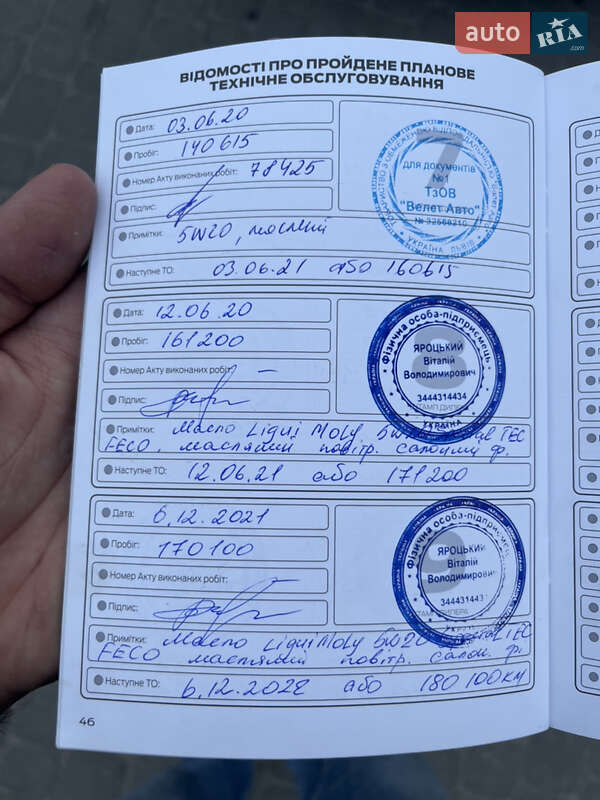 auto RIA .com
ВІДОМОСТІ ПРО ПРОЙДЕНЕ ПЛАНОВЕ
ТЕХНІЧНЕ ОБСЛУГОВУВАННЯ
Дата: 03.06.20
Пробіг: 140615
Номер Акту виконаних робіт: 78425
Підпис:
Примітки: 5W20, масляний
Наступне ТО: 03.06.21 або 160615
7
для документів
№1
ТзОВ
"Велет Авто"
УКРАЇНА ЛЬВІВ
Дата: 12.06.20
Пробіг: 161200
Номер Акту виконаних робіт: –
Підпис:
Примітки: Масло Liqui Moly 5W20 TEC
FECO, масляний повітр. салонний ф.
Наступне ТО: 12.06.21 або 171200
8
Фізична особа-підприємець
ЯРОЦЬКИЙ
Віталій
Володимирович
3444314434
УКРАЇНА
Дата: 6.12.2021
Пробіг: 170100
Номер Акту виконаних робіт:
Підпис:
Примітки: Масло Liqui Moly 5W20 Special TEC
FECO масляний повітр. салон. ф.
Наступне ТО: 6.12.2022 або 180100км
9
Фізична особа-підприємець
ЯРОЦЬКИЙ
Віталій
Володимирович
УКРАЇНА
46